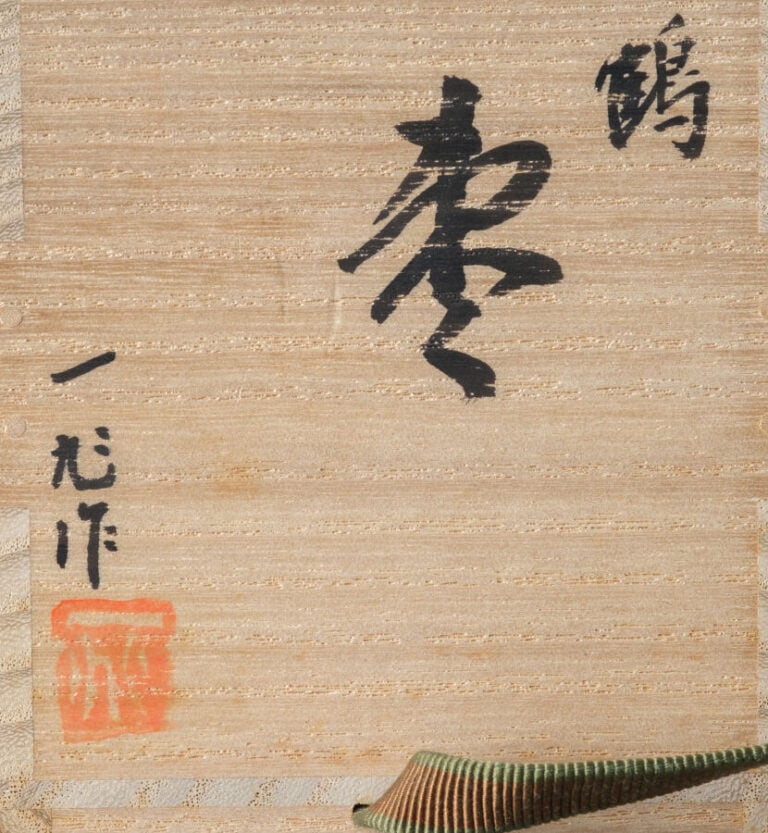 鶴
棗
一尨作